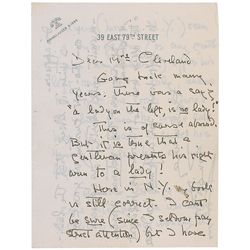 39 EAST 79TH STREET
Dear Mrs. Cleveland
Going back many
years, there was a say-
"a lady on the left, is no lady!"
This is of course absurd.
But it is true that a
gentleman presents his right
arm to a lady!
Here in N.Y., my book
is still correct. I can't
be sure (since I seldom pay
strict attention) but I have